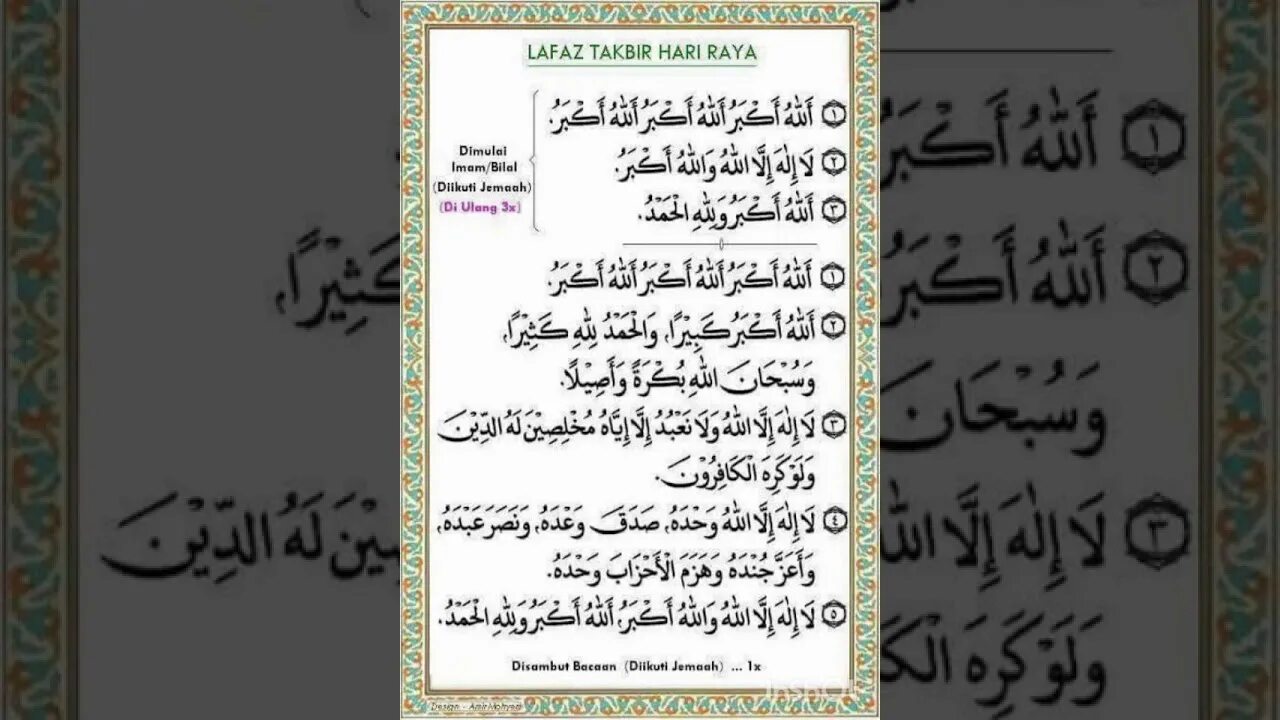 LAFAZ TAKBIR HARI RAYA
Dimulai
Imam/Bilal
(Diikuti Jemaah)
(Di Ulang 3x)
١ اَللهُ أَكْبَرُ اَللهُ أَكْبَرُ اَللهُ أَكْبَرُ.
٢ لَا إِلٰهَ إِلَّا اللهُ وَاللهُ أَكْبَرُ.
٣ اَللهُ أَكْبَرُ وَلِلّٰهِ الْحَمْدُ.
١ اَللهُ أَكْبَرُ اَللهُ أَكْبَرُ اَللهُ أَكْبَرُ.
٢ اَللهُ أَكْبَرُ كَبِيْرًا، وَالْحَمْدُ لِلّٰهِ كَثِيْرًا،
وَسُبْحَانَ اللهِ بُكْرَةً وَأَصِيْلًا.
٣ لَا إِلٰهَ إِلَّا اللهُ وَلَا نَعْبُدُ إِلَّا إِيَّاهُ مُخْلِصِيْنَ لَهُ الدِّيْنَ
وَلَوْ كَرِهَ الْكَافِرُوْنَ.
٤ لَا إِلٰهَ إِلَّا اللهُ وَحْدَهُ، صَدَقَ وَعْدَهُ، وَنَصَرَ عَبْدَهُ،
وَأَعَزَّ جُنْدَهُ وَهَزَمَ الْأَحْزَابَ وَحْدَهُ.
٥ لَا إِلٰهَ إِلَّا اللهُ وَاللهُ أَكْبَرُ، اَللهُ أَكْبَرُ وَلِلّٰهِ الْحَمْدُ.
Disambut Bacaan (Diikuti Jemaah) ... 1x